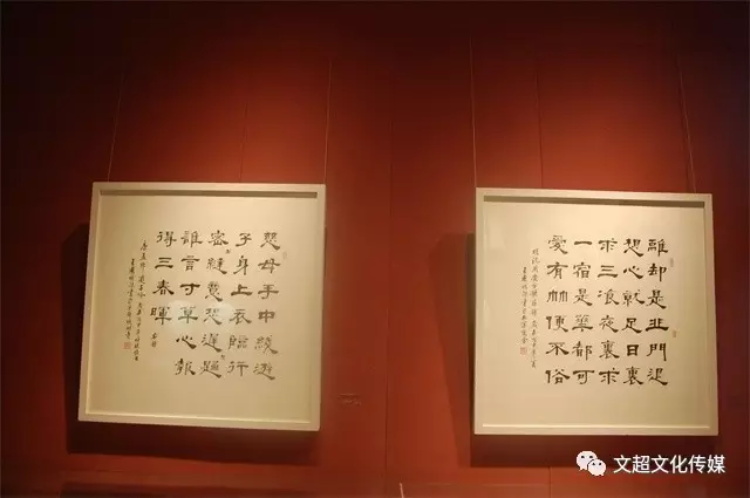 慈母手中綫遊
子身上衣臨行
密〻縫意恐遲〻歸
誰言寸草心報
得三春暉
唐孟郊遊子吟
離却是非門退
想心就足日裏
求三湌夜裏求
一宿是華都可
愛有竹便不俗
文超文化传媒